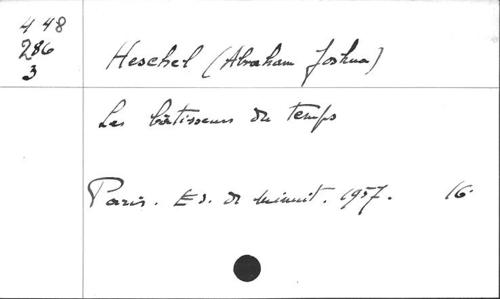 448
286
3
Heschel (Abraham Joshua)
Les bâtisseurs du temps
Paris. Ed. de minuit. 1957. 16.